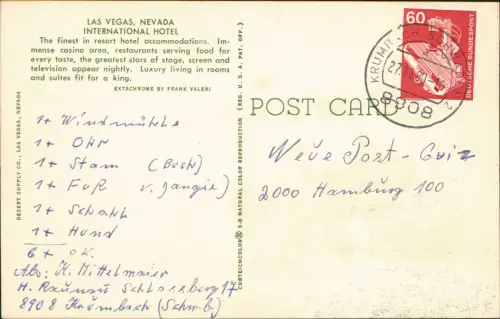 LAS VEGAS, NEVADA
INTERNATIONAL HOTEL
The finest in resort hotel accommodations. Im-
mense casino area, restaurants serving food for
every taste, the greatest stars of stage, screen and
television appear nightly. Luxury living in rooms
and suites fit for a king.
EKTACHROME BY FRANK VALERI
DESERT SUPPLY CO., LAS VEGAS, NEVADA
CURTEICHCOLOR® 3-D NATURAL COLOR REPRODUCTION (REG. U. S. A. PAT. OFF.)
POST CARD
60
DEUTSCHE BUNDESPOST
8908
1x Windmühle
1x Ohr
1x Stam (Buch)
1x Fuß v.
1x
1x Hund
6x OK.
Neue Post-Quiz
2000 Hamburg 100
Abs: K. Mittelmaier
H. Raunau Schlossberg 17
8908 Krumbach (Schwb)